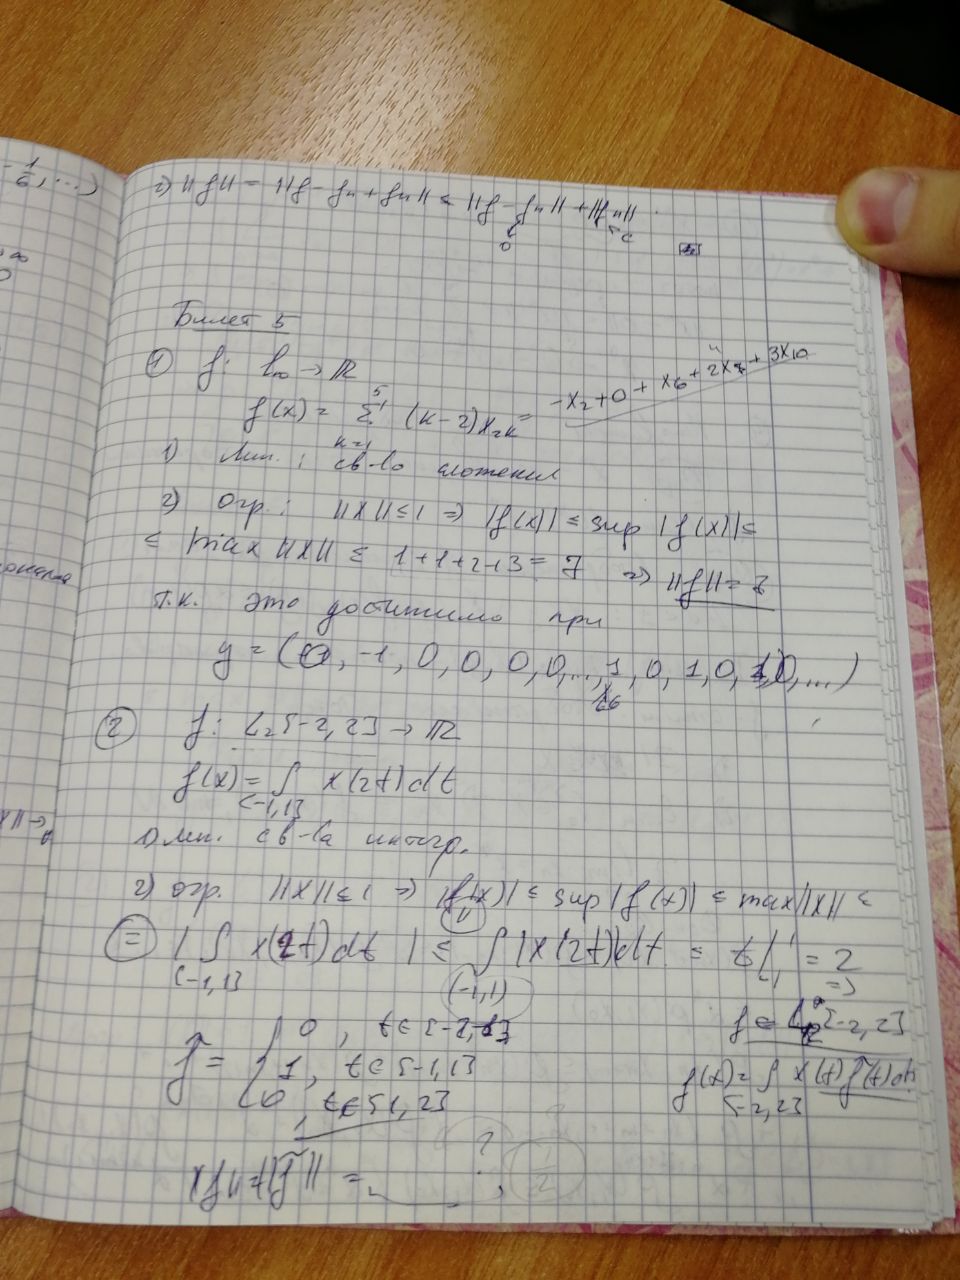 1/6, ...)
2) ||f|| = ||f - fn + fn|| ≤ ||f - fn|| + ||fn||
0
≤ c
Билет 5
1) f: l∞ → ℝ
f(x) = Σ (k-2)x₂ₖ = -x₂ + 0 + x₆ + 2x₈ + 3x₁₀
5
k=1
1) лин.: св-во сложения
2) огр.: ||x|| ≤ 1 ⇒ |f(x)| ≤ sup |f(x)| ≤
≤ max ||x|| ≤ 1+1+2+3 = 7 ⇒ ||f|| = 7
т.к. это достижимо при
y = (0, -1, 0, 0, 0, 0, ..., 1, 0, 1, 0, 1, 0, ...)
x6
2) f: L₂[-2,2] → ℝ
f(x) = ∫ x(2t)dt
[-1,1]
1) лин. св-ва интегр.
2) огр. ||x|| ≤ 1 ⇒ |f(x)| ≤ sup |f(x)| ≤ max ||x|| ≤
= | ∫ x(2t)dt | ≤ ∫ |x(2t)|dt = t |¹₋₁ = 2
[-1,1]
(-1,1)
⇒
f̃ = { 0, t∈[-2,-1]
1, t∈[-1,1]
0, t∈[1,2]
f ∈ L₂[-2,2]
f(x) = ∫ x(t) f̃(t)dt
[-2,2]
||f̃|| = ?